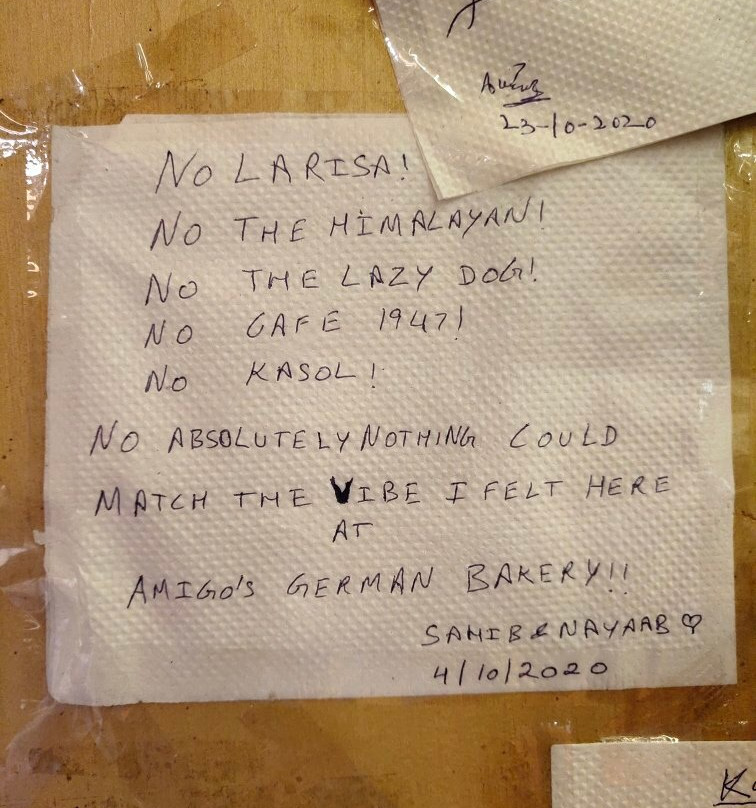 23-10-2020
NO LARISA!
NO THE HIMALAYAN!
NO THE LAZY DOG!
NO CAFE 1947!
NO KASOL!
NO ABSOLUTELY NOTHING COULD
MATCH THE VIBE I FELT HERE
AT
AMIGO'S GERMAN BAKERY!!
SAHIB & NAYAAB ♡
4/10/2020